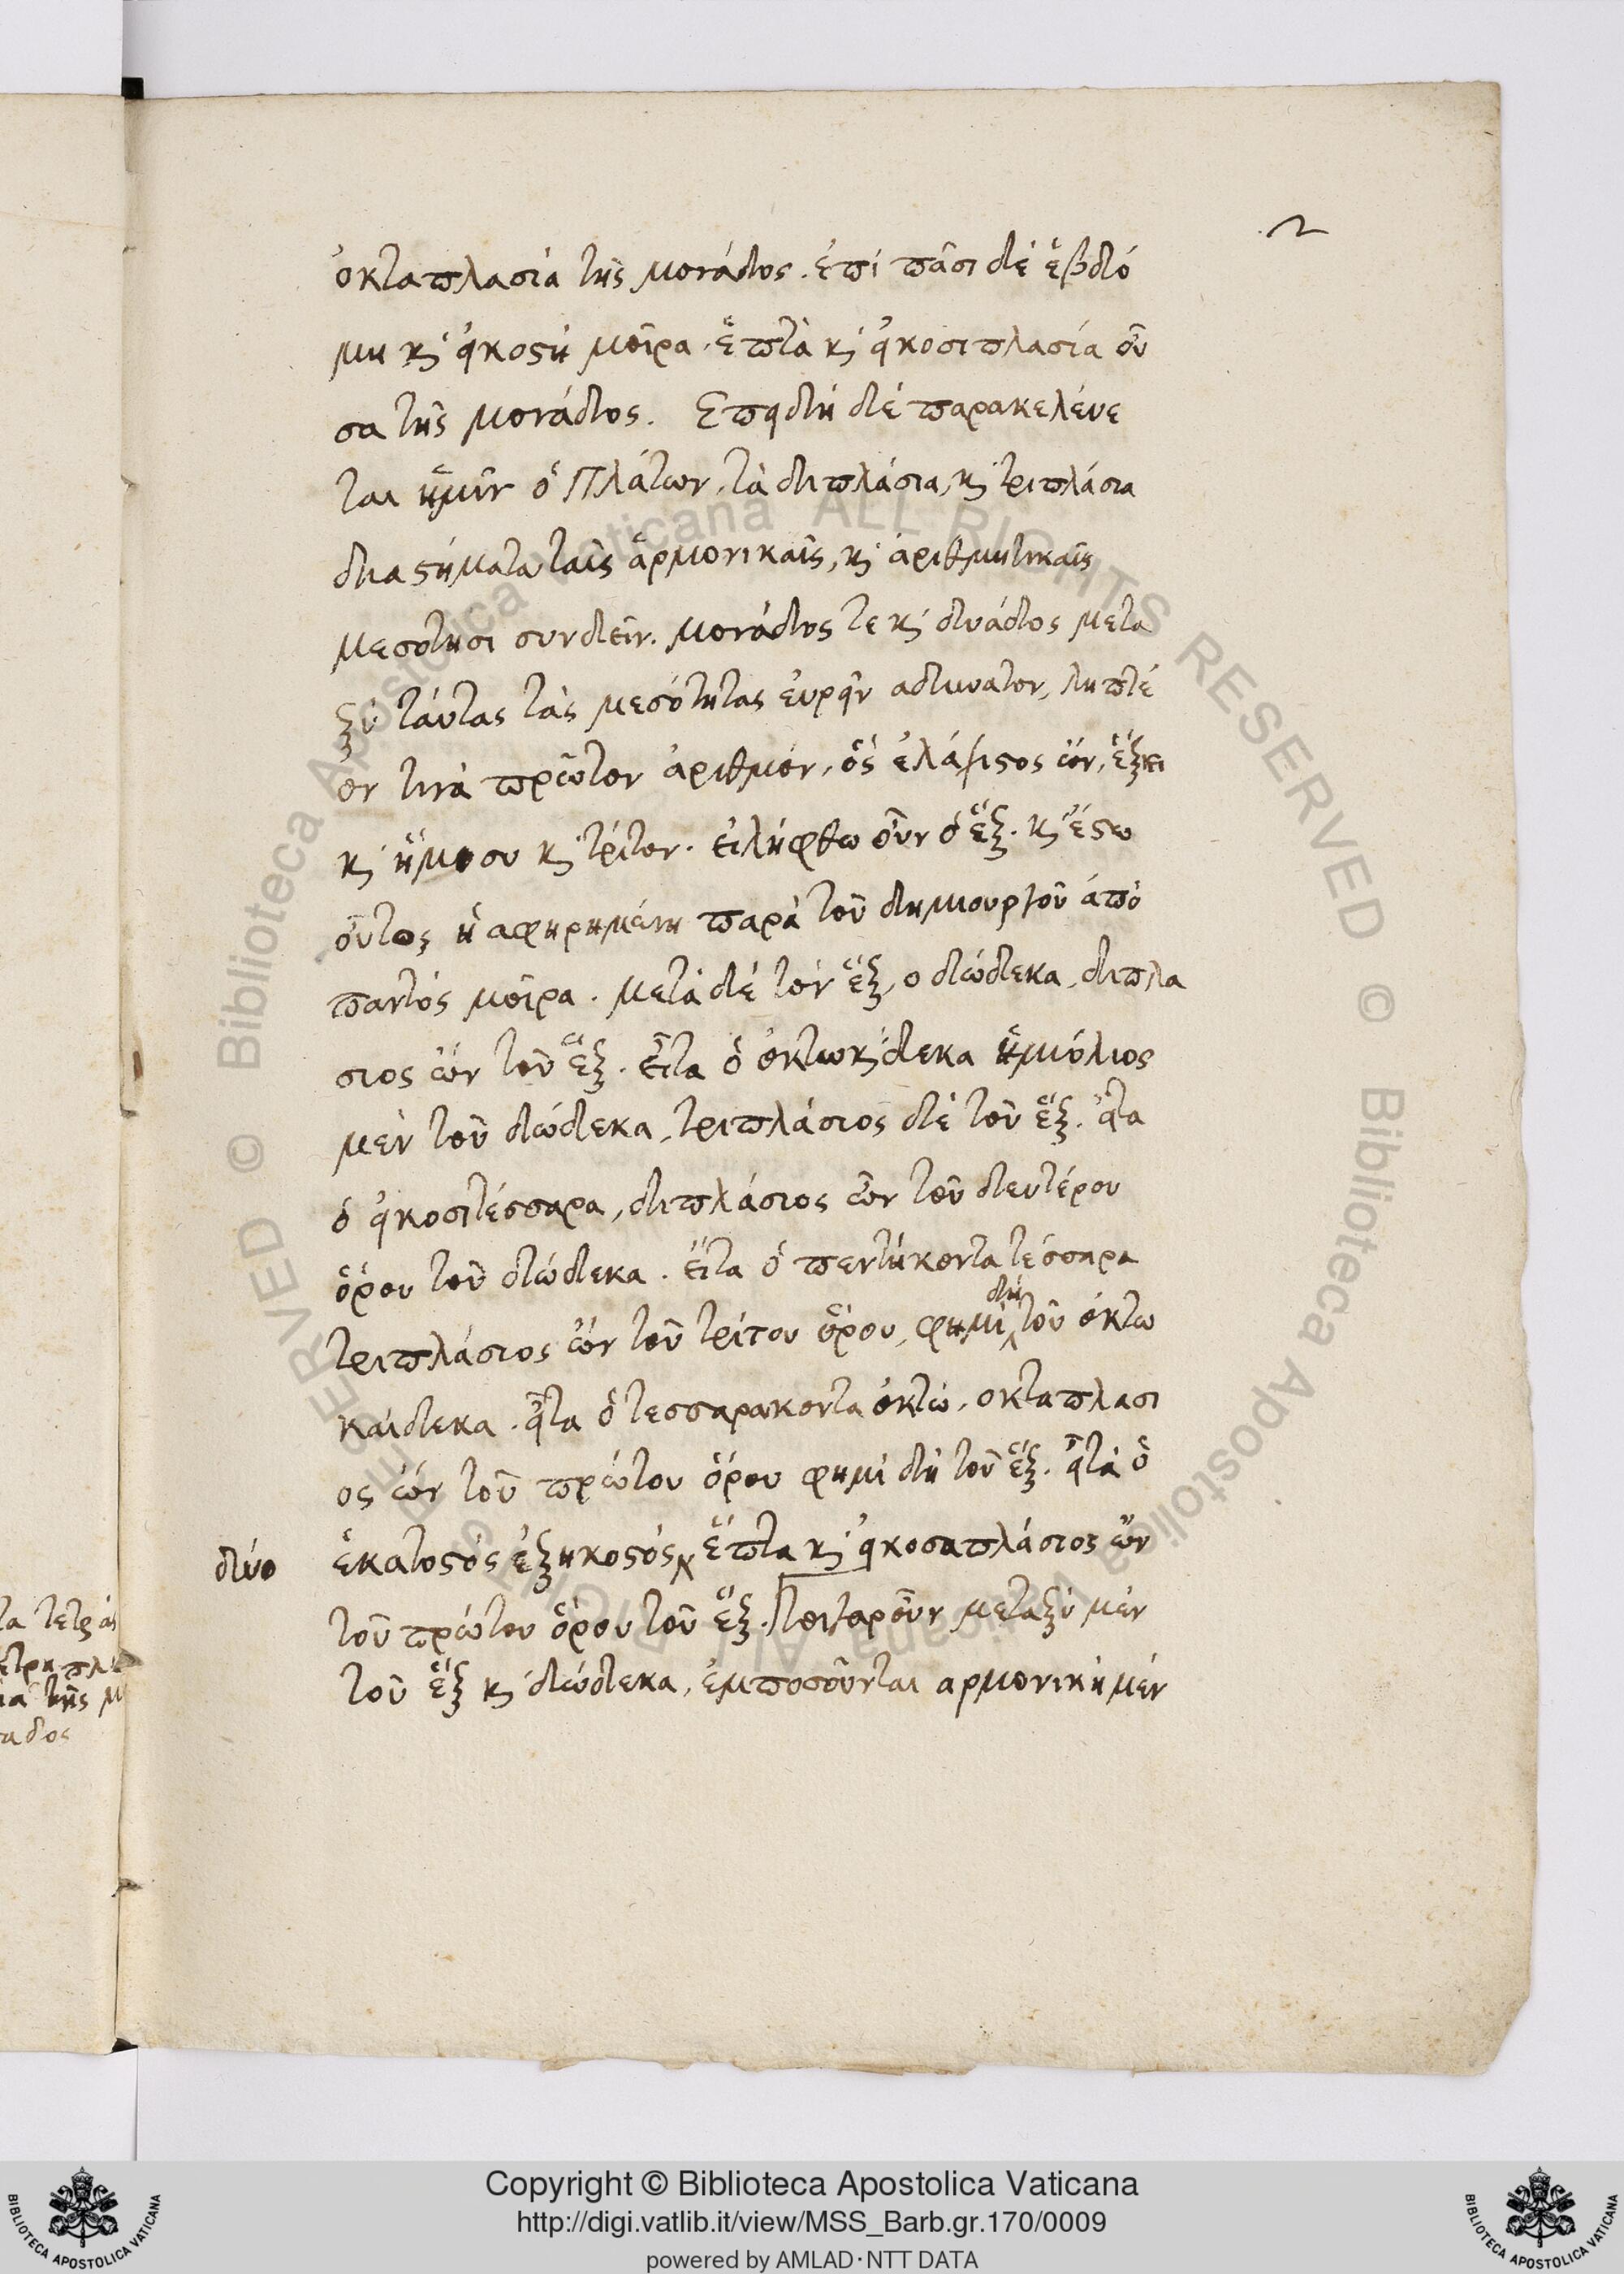 2
ὀκταπλασία τῆς μονάδος. ἐπὶ πᾶσι δὲ ἑβδό
μη κ̀ εἰκοστὴ μοῖρα. ἑπτὰ κ̀ εἰκοσιπλασία οὖ
σα τῆς μονάδος. Επειδὴ δὲ παρακελέυε
ται ἡμῖν ὁ Πλάτων, τὰ διπλάσια, κ̀ τριπλάσια
διαστήματα ταῖς ἁρμονικαῖς, κ̀ ἀριθμητικαῖς
μεσότησι συνδεῖν. μονάδος τε κ̀ δυάδος μετα
ξὺ τάυτας τὰς μεσότητας ἑυρεῖν αδυνατον, ληπτέ
ον τινὰ πρῶτον ἀριθμόν, ὃς ἐλάχιστος ὢν, ἕξει
κ̀ ἥμισυ κ̀ τρίτον. εἰλήφθω οὖν ὁ ἕξ. κ̀ ἔστω
οὗτος ἡ αφηρημένη παρὰ τοῦ δημιουργοῦ ἀπὸ
παντὸς μοῖρα. μετὰ δὲ τὸν ἕξ, ο δώδεκα, διπλα
σιος ὢν τοῦ ἕξ. εἶτα ὁ ὀκτωκ̀δεκα ἡμιόλιος
μὲν τοῦ δώδεκα, τριπλάσιος δὲ τοῦ ἕξ. εἶτα
ὁ εἰκοσιτέσσαρα, διπλάσιος ὢν τοῦ δευτέρου
ὅρου τοῦ δώδεκα. εἶτα ὁ πεντήκοντα τέσσαρα
δὴ
τριπλάσιος ὢν τοῦ τρίτου ὅρου, φημὶ τοῦ ὀκτω
καίδεκα. εἶτα ὁ τεσσαρακοντα ὀκτώ, οκταπλασι
ος ὢν τοῦ πρώτου ὅρου φημὶ δὴ τοῦ ἕξ. εἶτὰ ὁ
δύο
ἑκατοστὸς ἑξηκοστὸς ἑπτα κ̀ εἰκοσαπλάσιος ὢν
τοῦ πρώτου ὅρου τοῦ ἕξ. Τοιγαροῦν μεταξὺ μὲν
τοῦ ἕξ κ̀ δώδεκα, ἐμποσοῦνται αρμονικὴ μὲν
δος
Copyright © Biblioteca Apostolica Vaticana
http://digi.vatlib.it/view/MSS_Barb.gr.170/0009
powered by AMLAD·NTT DATA
BIBLIOTECA APOSTOLICA VATICANA
BIBLIOTECA APOSTOLICA VATICANA